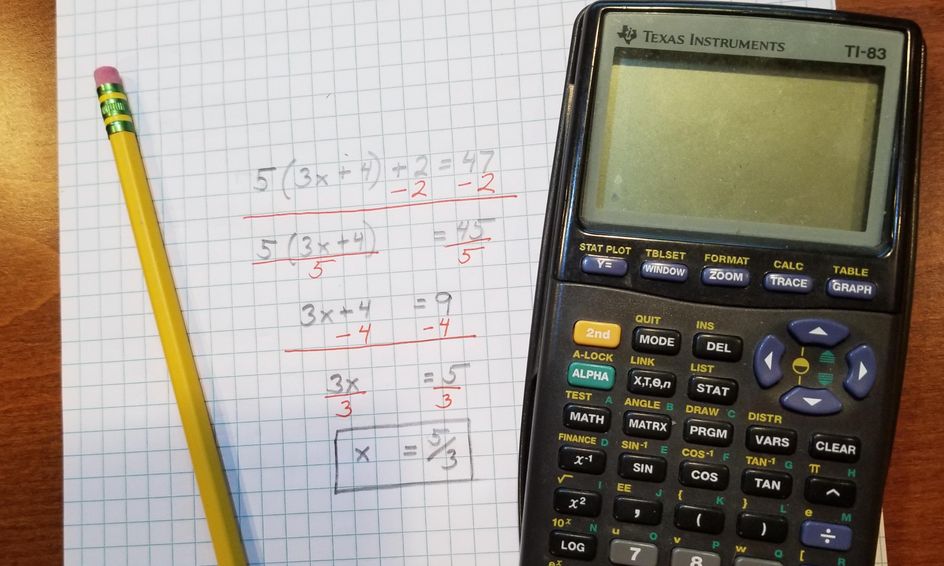 5(3x+4)+2=47
-2 -2
5(3x+4) =45
5 5
3x+4 =9
-4 -4
3x =5
3 3
x =5/3
TEXAS INSTRUMENTS TI-83
STAT PLOT TBLSET FORMAT CALC TABLE
Y= WINDOW ZOOM TRACE GRAPH
QUIT INS
2nd MODE DEL
A-LOCK LINK LIST
ALPHA X,T,Θ,n STAT
TEST A ANGLE B DRAW C DISTR
MATH MATRX PRGM VARS CLEAR
FINANCE D SIN⁻¹ E COS⁻¹ F TAN⁻¹ G π H
x⁻¹ SIN COS TAN ^
√ I EE J { K } L e M
x² , ( ) ÷
10ˣ N u O v P w Q [
LOG 7 8
eˣ